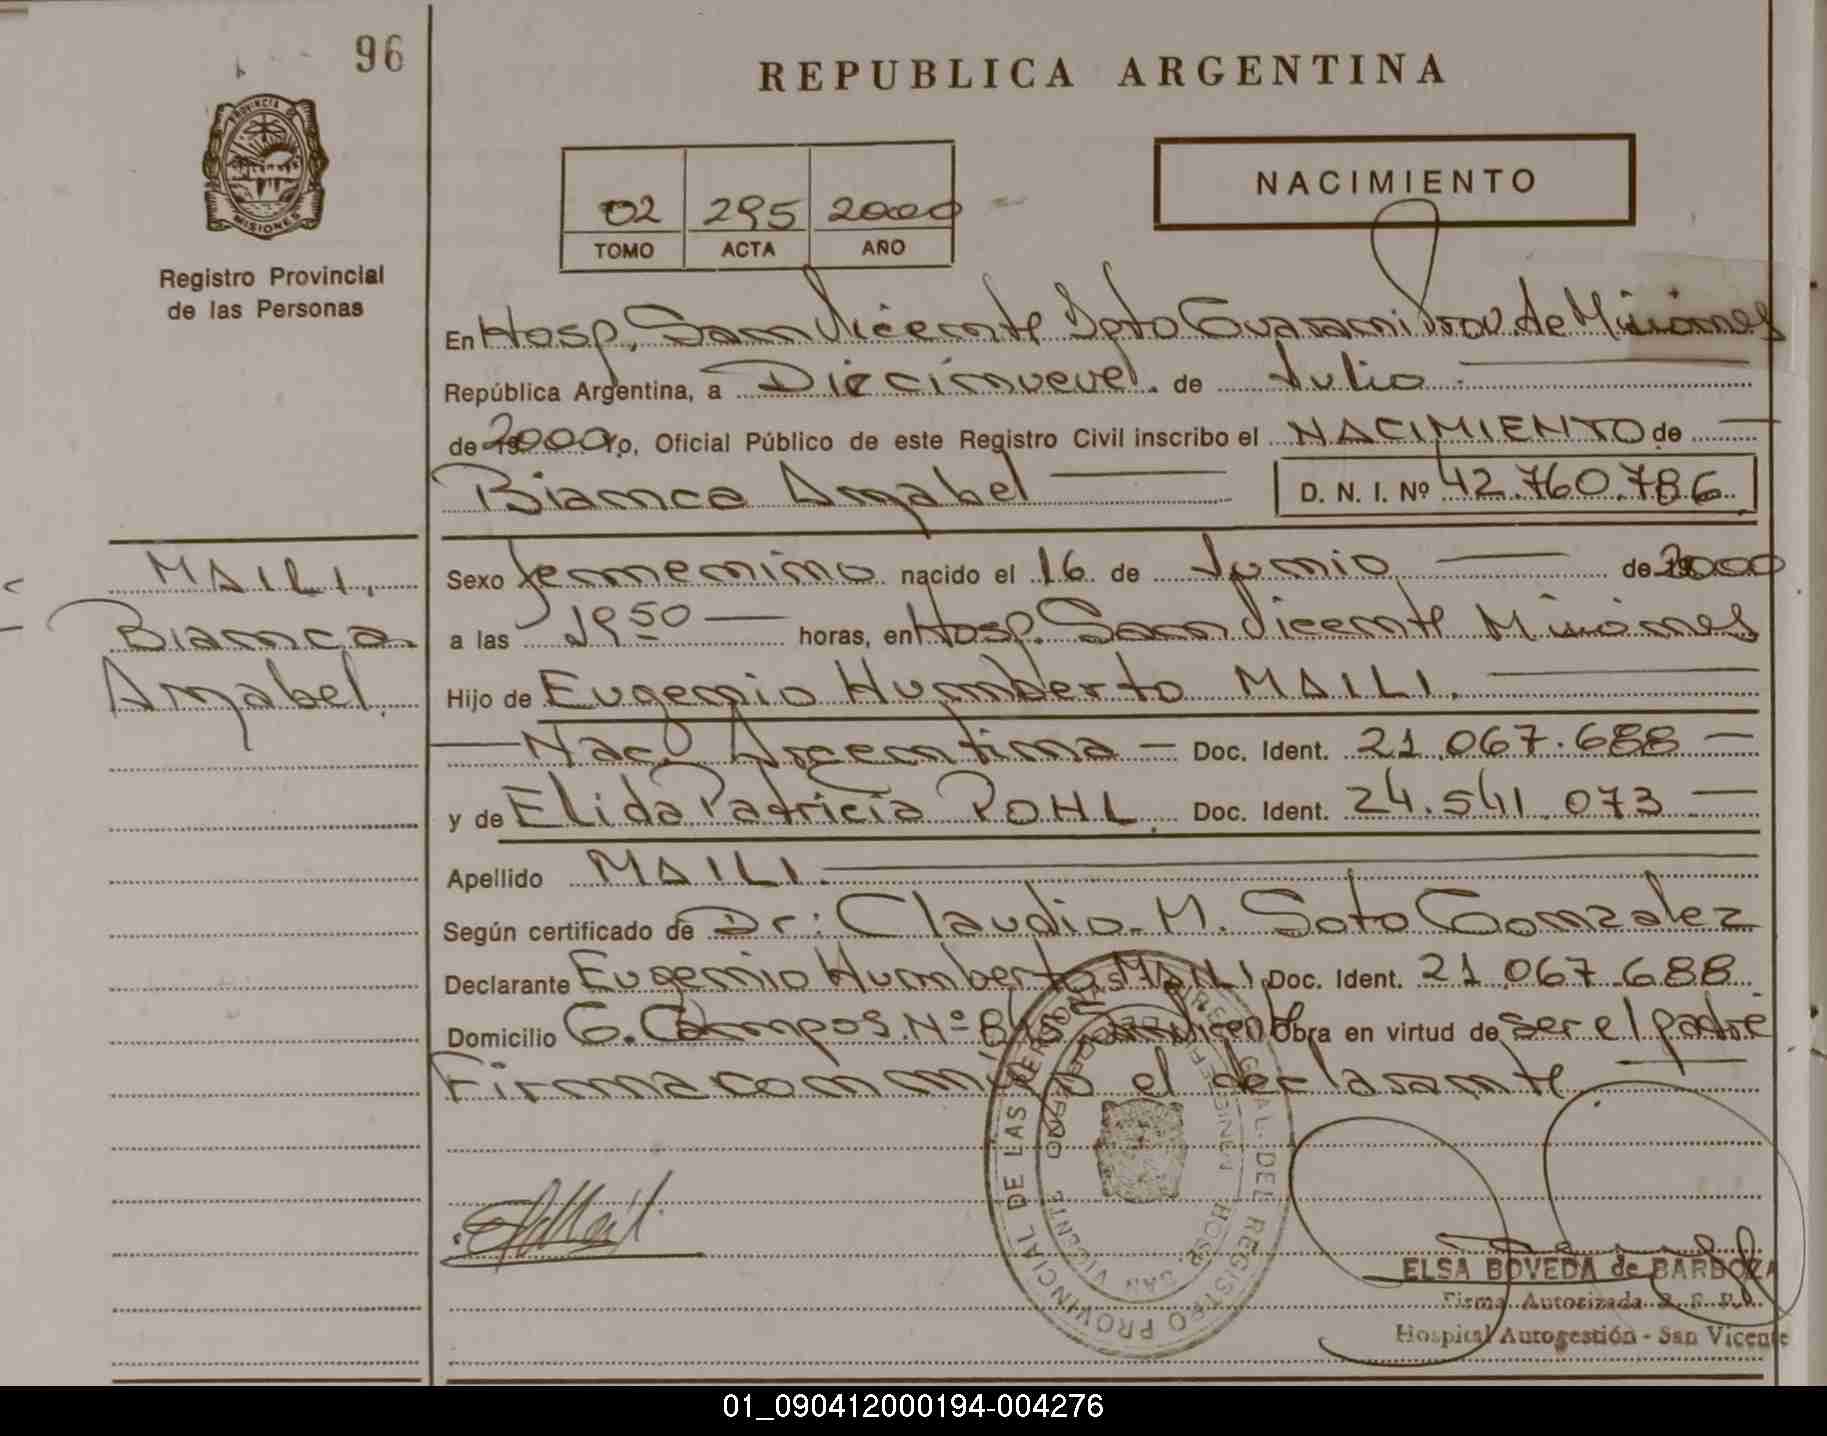 96
REPUBLICA ARGENTINA
PROVINCIA DE
MISIONES
Registro Provincial
de las Personas
02 295 2000
TOMO ACTA AÑO
NACIMIENTO
En Hosp. San Vicente Dpto Guarani Prov. de Misiones
República Argentina, a Diecinueve de Julio
de 2000 Yo, Oficial Público de este Registro Civil inscribo el NACIMIENTO de
Bianca Anabel D. N. I. Nº 42.760.786
MAILI,
Bianca
Anabel
Sexo femenino nacido el 16 de Junio de 2000
a las 19 50 horas, en Hosp. San Vicente Misiones
Hijo de Eugenio Humberto MAILI.
Nac. Argentina Doc. Ident. 21.067.688
y de Elida Patricia POHL Doc. Ident. 24.541.073
Apellido MAILI
Según certificado de Dr: Claudio M. Soto Gonzalez
Declarante Eugenio Humberto MAILI Doc. Ident. 21.067.688
Domicilio C. Campos Nº San Vicente Obra en virtud de ser el padre
Firma con migo el declarante
REGISTRO PROVINCIAL DE LAS PERSONAS
HOSP. SAN VICENTE
ELSA BOVEDA de BARBOZA
Firma Autorizada R. P. P.
Hospital Autogestión - San Vicente
01_090412000194-004276